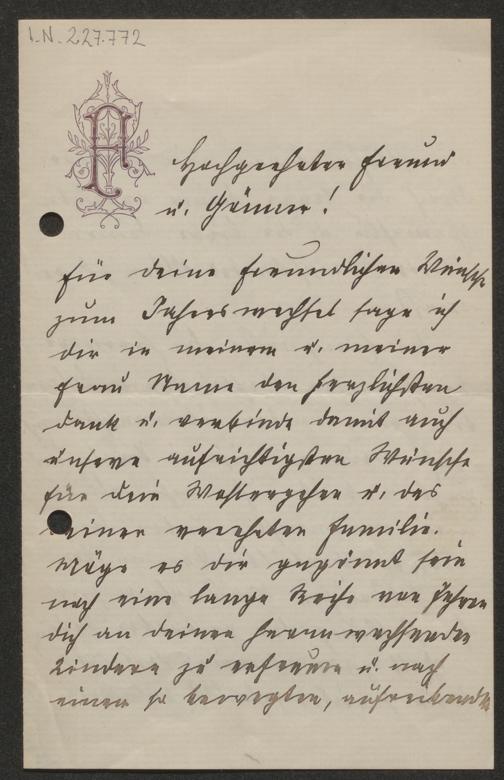 I.N. 227.772
A
Hochgeehrter Freund
u. Gönner!
Für deine freundlichen Wünsche
zum Jahreswechsel sage ich
dir in meinem u. meiner
Frau Name den herzlichsten
Dank u. verbinde damit auch
unsere aufrichtigsten Wünsche
für dein Wohlergehen u. das
deiner verehrten Familie.
Möge es dir gegönnt sein
noch eine lange Reihe von Jahren
dich an deinen heranwachsenden
Kindern zu erfreuen u. nach
einem so bewegten, aufreibenden